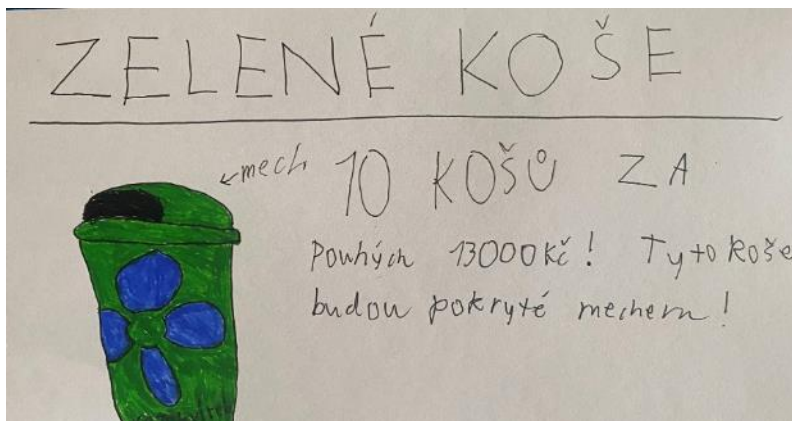 ZELENÉ KOŠE
mech
10 KOŠŮ ZA
Pouhých 13000Kč! Tyto koše
budou pokryté mechem!